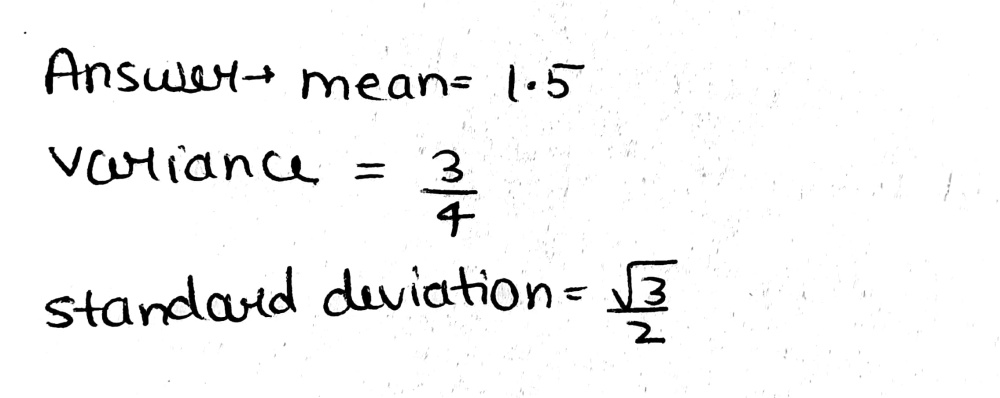 Answer→ mean= 1.5
variance = 3/4
standard deviation= √3/2